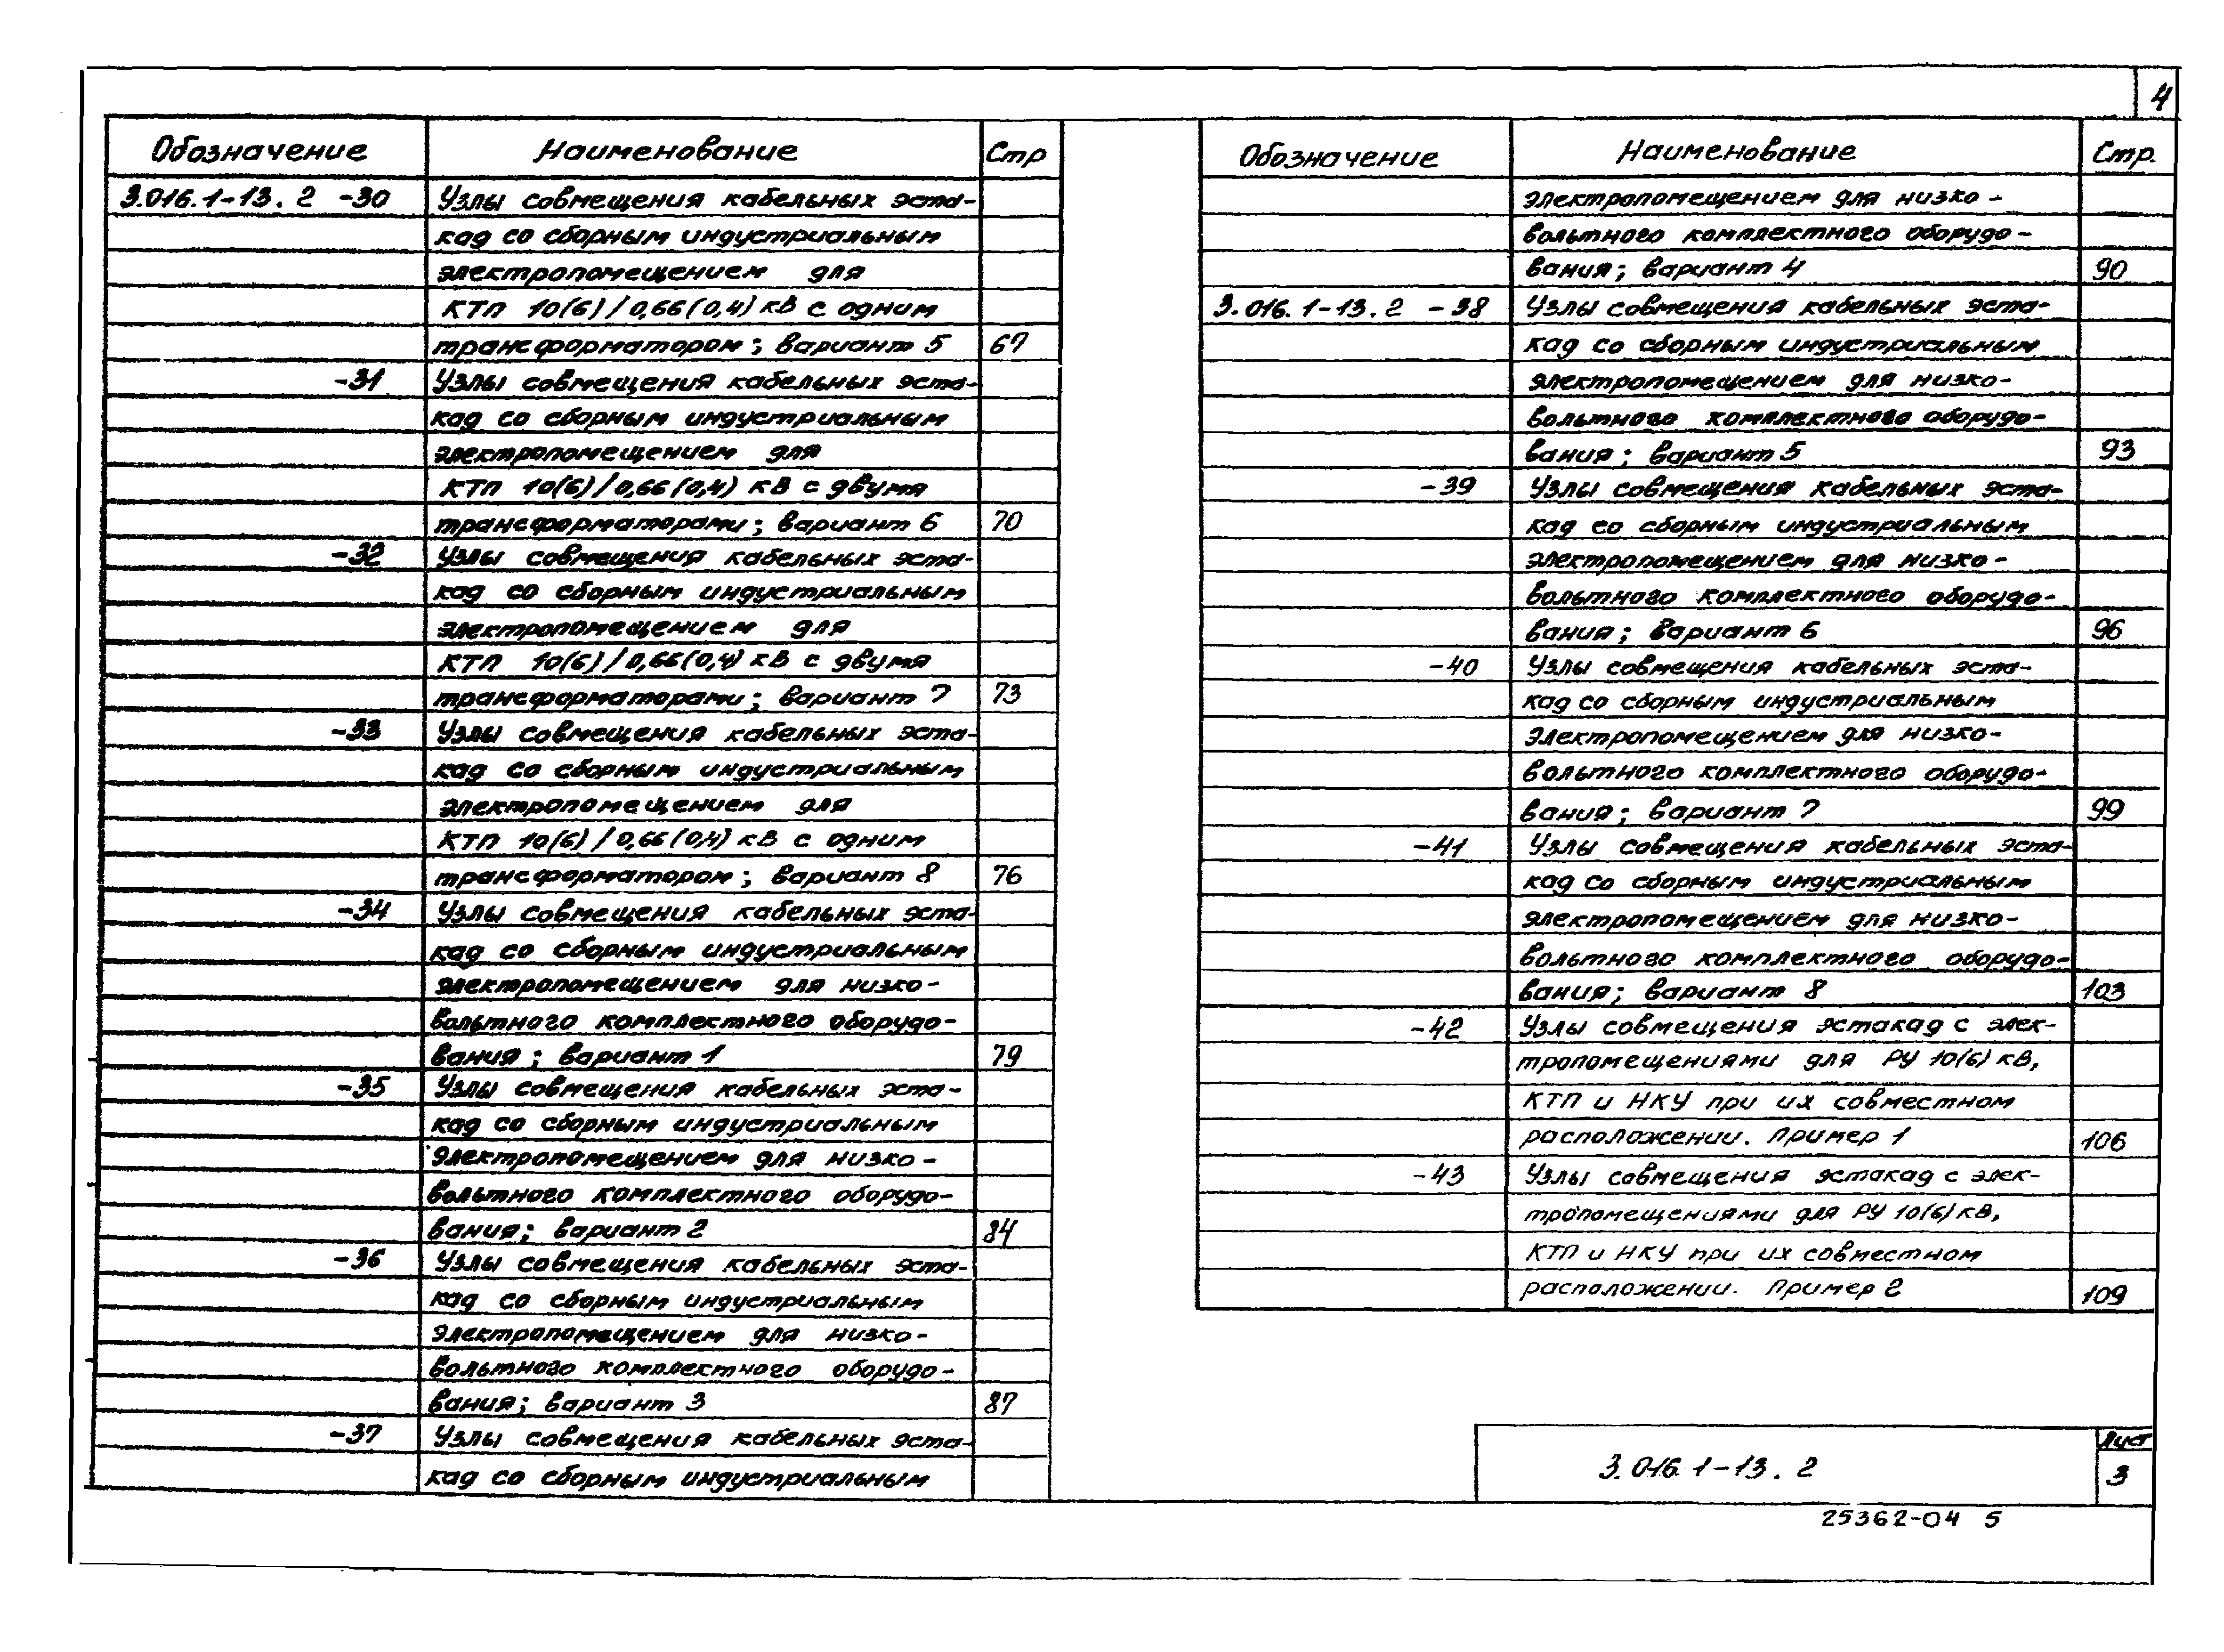 4
Обозначение Наименование Стр
3.016.1-13.2 -30 Узлы совмещения кабельных эста-
кад со сборным индустриальным
электропомещением для
КТП 10(6)/0,66(0,4) кВ с одним
трансформатором; вариант 5 67
-31 Узлы совмещения кабельных эста-
кад со сборным индустриальным
электропомещением для
КТП 10(6)/0,66(0,4) кВ с двумя
трансформаторами; вариант 6 70
-32 Узлы совмещения кабельных эста-
кад со сборным индустриальным
электропомещением для
КТП 10(6)/0,66(0,4) кВ с двумя
трансформаторами; вариант 7 73
-33 Узлы совмещения кабельных эста-
кад со сборным индустриальным
электропомещением для
КТП 10(6)/0,66(0,4) кВ с одним
трансформатором; вариант 8 76
-34 Узлы совмещения кабельных эста-
кад со сборным индустриальным
электропомещением для низко-
вольтного комплектного оборудо-
вания; вариант 1 79
-35 Узлы совмещения кабельных эста-
кад со сборным индустриальным
электропомещением для низко-
вольтного комплектного оборудо-
вания; вариант 2 84
-36 Узлы совмещения кабельных эста-
кад со сборным индустриальным
электропомещением для низко-
вольтного комплектного оборудо-
вания; вариант 3 87
-37 Узлы совмещения кабельных эста-
кад со сборным индустриальным
Обозначение Наименование Стр.
электропомещением для низко-
вольтного комплектного оборудо-
вания; вариант 4 90
3.016.1-13.2 -38 Узлы совмещения кабельных эста-
кад со сборным индустриальным
электропомещением для низко-
вольтного комплектного оборудо-
вания; вариант 5 93
-39 Узлы совмещения кабельных эста-
кад со сборным индустриальным
электропомещением для низко-
вольтного комплектного оборудо-
вания; вариант 6 96
-40 Узлы совмещения кабельных эста-
кад со сборным индустриальным
электропомещением для низко-
вольтного комплектного оборудо-
вания; вариант 7 99
-41 Узлы совмещения кабельных эста-
кад со сборным индустриальным
электропомещением для низко-
вольтного комплектного оборудо-
вания; вариант 8 103
-42 Узлы совмещения эстакад с элек-
тропомещениями для РУ 10(6) кВ,
КТП и НКУ при их совместном
расположении. Пример 1 106
-43 Узлы совмещения эстакад с элек-
тропомещениями для РУ 10(6) кВ,
КТП и НКУ при их совместном
расположении. Пример 2 109
3.016.1-13.2
Лист
3
25362-04 5